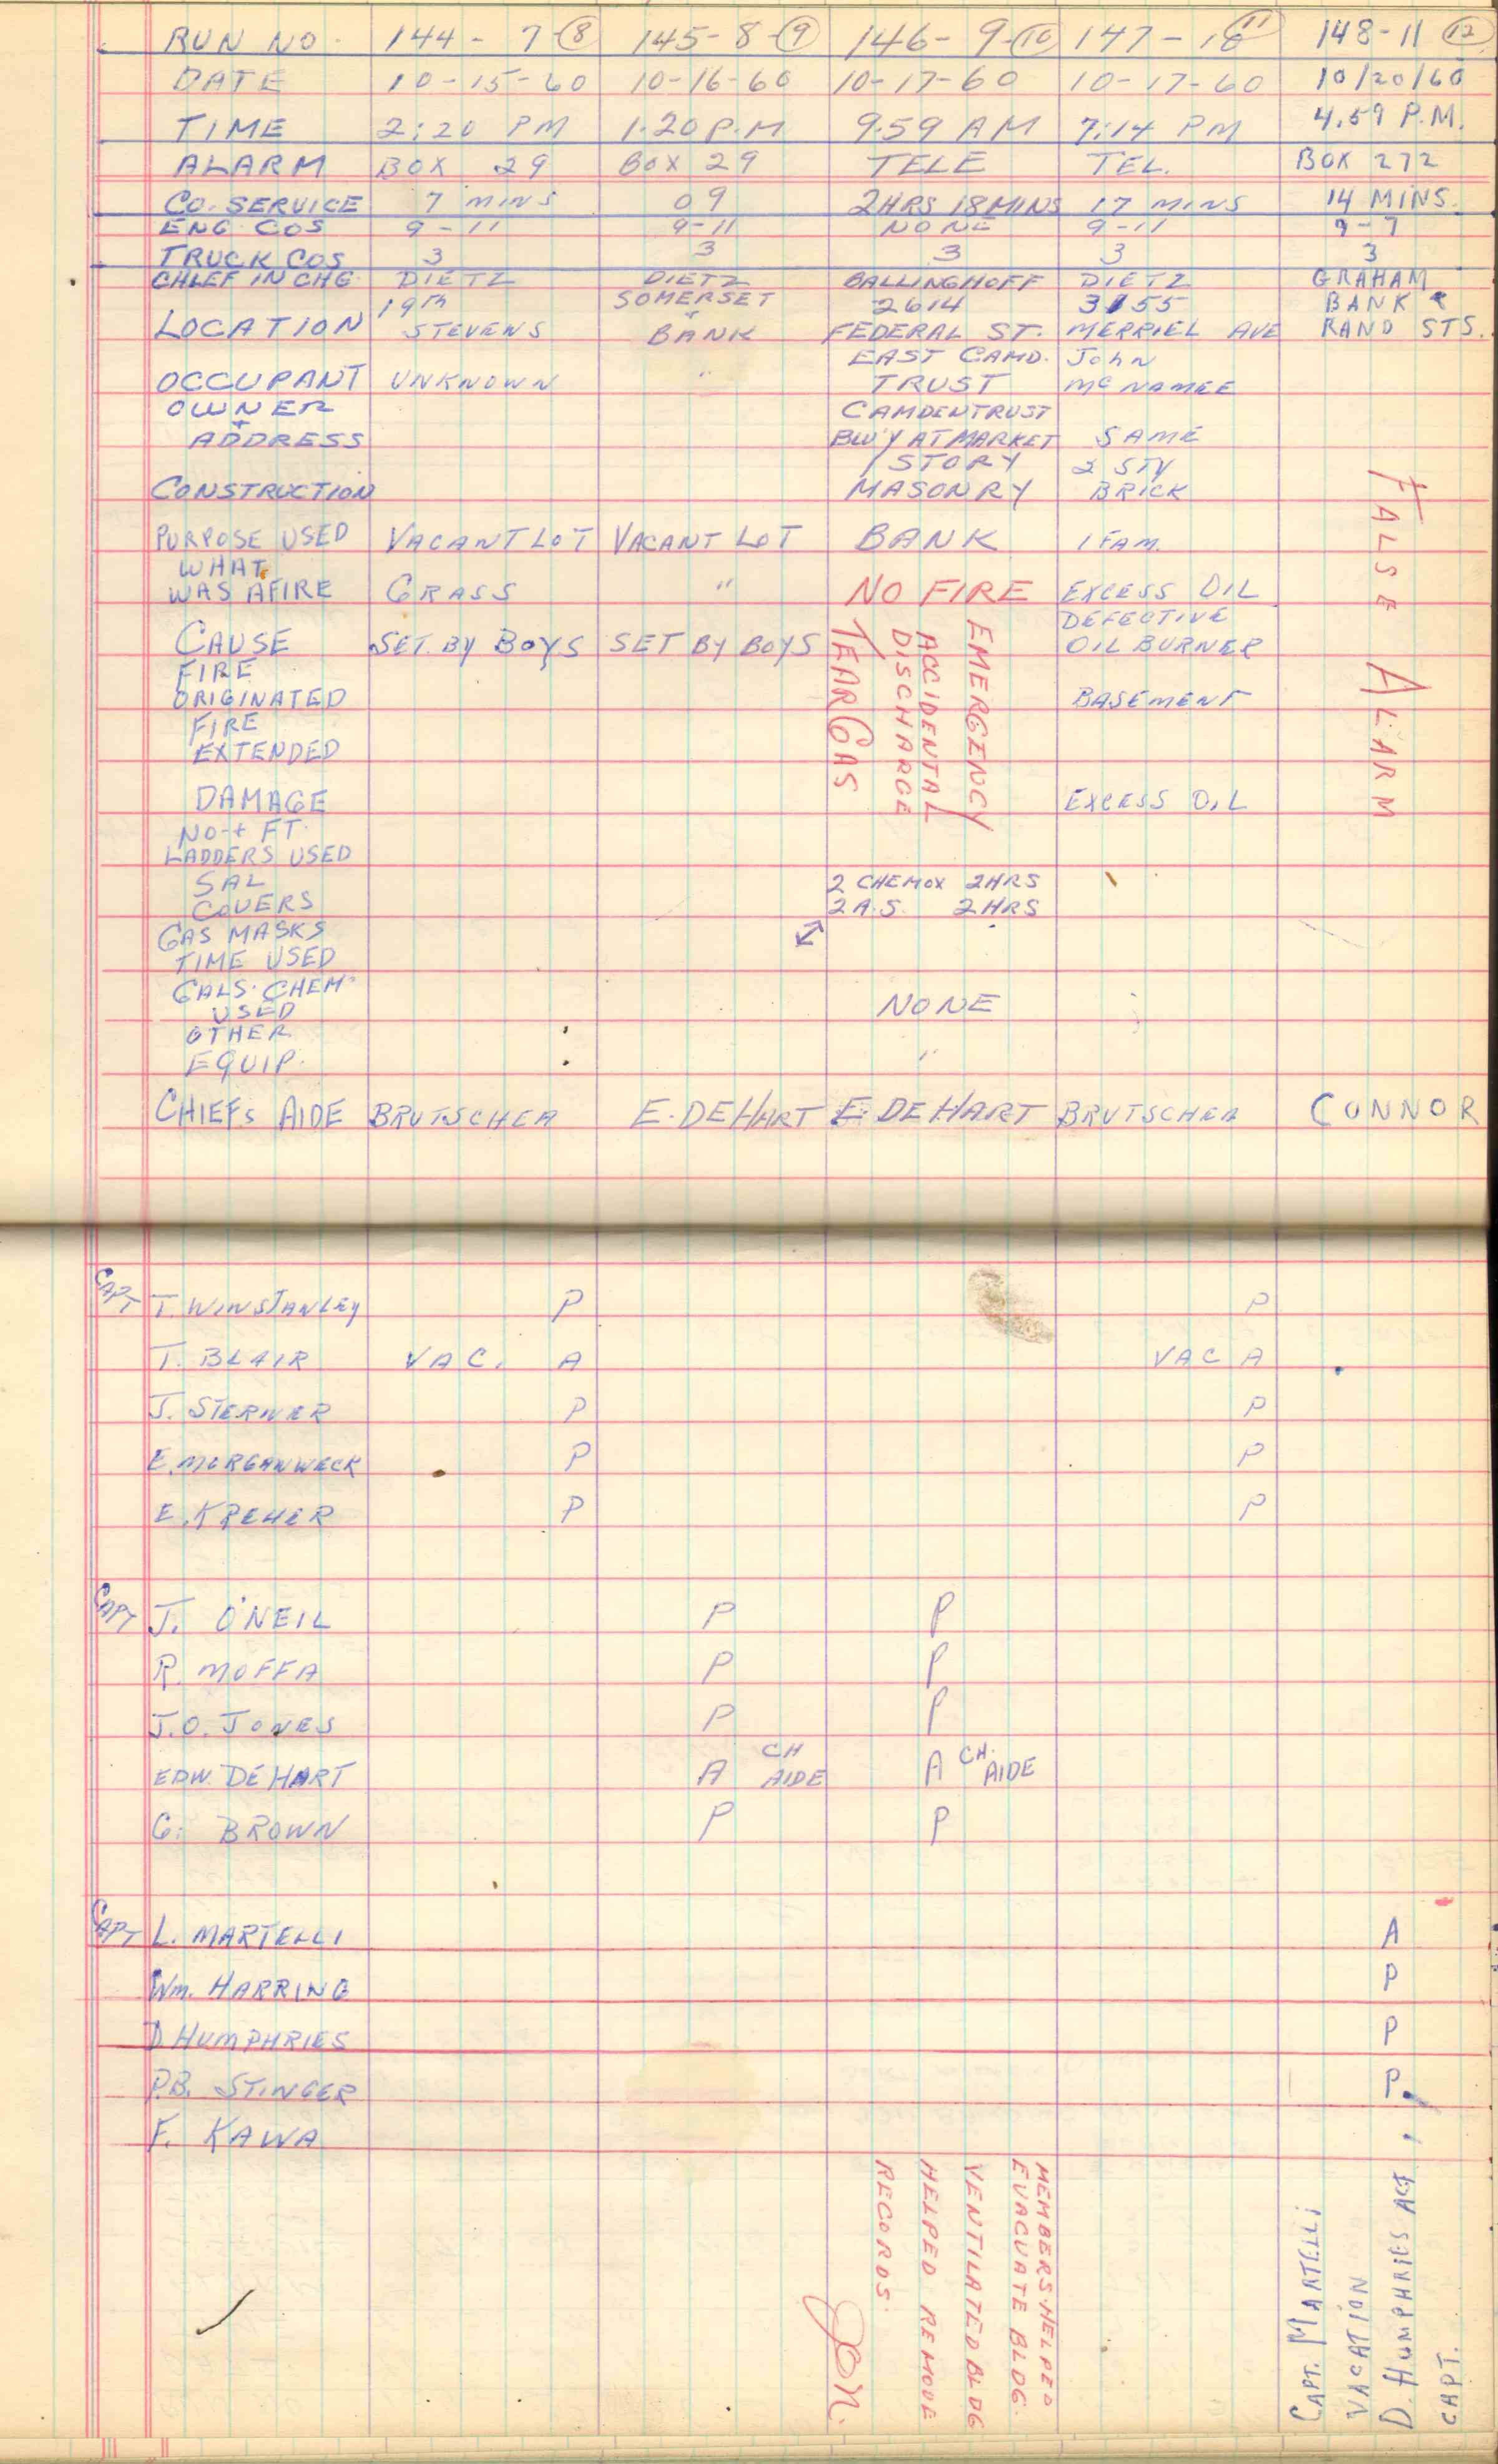 RUN NO. 144-7 (8) 145-8 (9) 146-9 (10) 147-10 (11) 148-11 (12)
DATE 10-15-60 10-16-60 10-17-60 10-17-60 10/20/60
TIME 2:20 PM 1.20 P.M 9.59 AM 7:14 PM 4.59 P.M.
ALARM BOX 29 BOX 29 TELE TEL. BOX 272
CO. SERVICE 7 MINS 09 2HRS 18MINS 17 MINS 14 MINS.
ENG COS 9-11 9-11 NONE 9-11 9-7
TRUCK COS 3 3 3 3 3
CHIEF IN CHG. DIETZ DIETZ BALLINGHOFF DIETZ GRAHAM
19TH SOMERSET 2614 3155 BANK &
LOCATION STEVENS + BANK FEDERAL ST. MERRIEL AVE RAND STS.
EAST CAMD. JOHN
OCCUPANT UNKNOWN " TRUST MCNAMEE
OWNER CAMDEN TRUST
+ ADDRESS BW'Y AT MARKET SAME
1 STORY 2 STY
CONSTRUCTION MASONRY BRICK
PURPOSE USED VACANT LOT VACANT LOT BANK 1 FAM.
WHAT
WAS AFIRE GRASS " NO FIRE EXCESS OIL
DEFECTIVE
CAUSE SET BY BOYS SET BY BOYS OIL BURNER
FIRE
ORIGINATED BASEMENT
FIRE
EXTENDED
DAMAGE EXCESS OIL
EMERGENCY
ACCIDENTAL
DISCHARGE
TEAR GAS
FALSE ALARM
NO + FT.
LADDERS USED
SAL 2 CHEMOX 2HRS
COVERS 2 A.S. 2HRS
GAS MASKS
TIME USED
GALS. CHEM.
USED NONE
OTHER
EQUIP. "
CHIEFS AIDE BRUTSCHEA E. DEHART E. DEHART BRUTSCHEA CONNOR
CAPT T. WINSTANLEY P P
T. BLAIR VAC. A VAC A
J. STERNER P P
E. MORGANWECK P P
E. KREHER P P
CAPT J. O'NEIL P P
R. MOFFA P P
J.O. JONES P P
EDW. DEHART A CH AIDE A CH. AIDE
G. BROWN P P
CAPT L. MARTELLI A
Wm. HARRING P
D HUMPHRIES P
P.B. STINGER P.
F. KAWA
MEMBERS. HELPED
EVACUATE BLDG.
VENTILATED BLDG
HELPED REMOVE
RECORDS.
JON.
CAPT. MARTELLI
VACATION
D. HUMPHRIES ACT
CAPT.